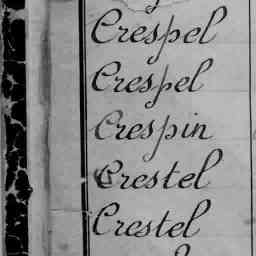 Crespel
Crespel
Crespin
Crestel
Crestel